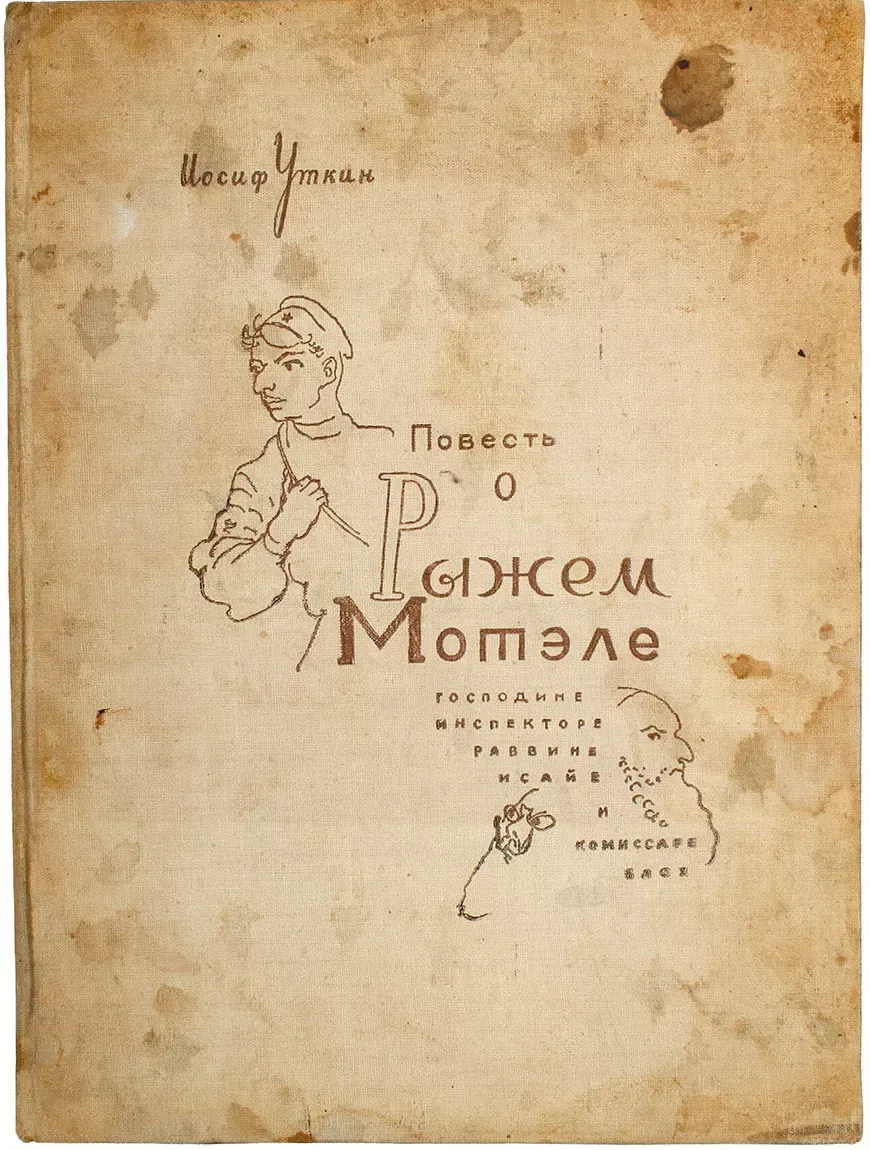 Иосиф Уткин
Повесть
о
Рыжем
Мотэле
господине
инспекторе
раввине
исайе
и
комиссаре
блох